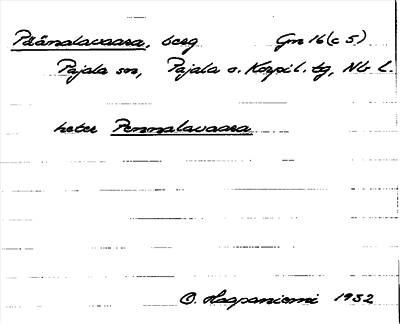 Päänalavaara, berg Gm 16 (c 5)
Pajala sn, Pajala o. Korpil. tg, Nb l.
heter Pennalavaara
O. Haapaniemi 1932